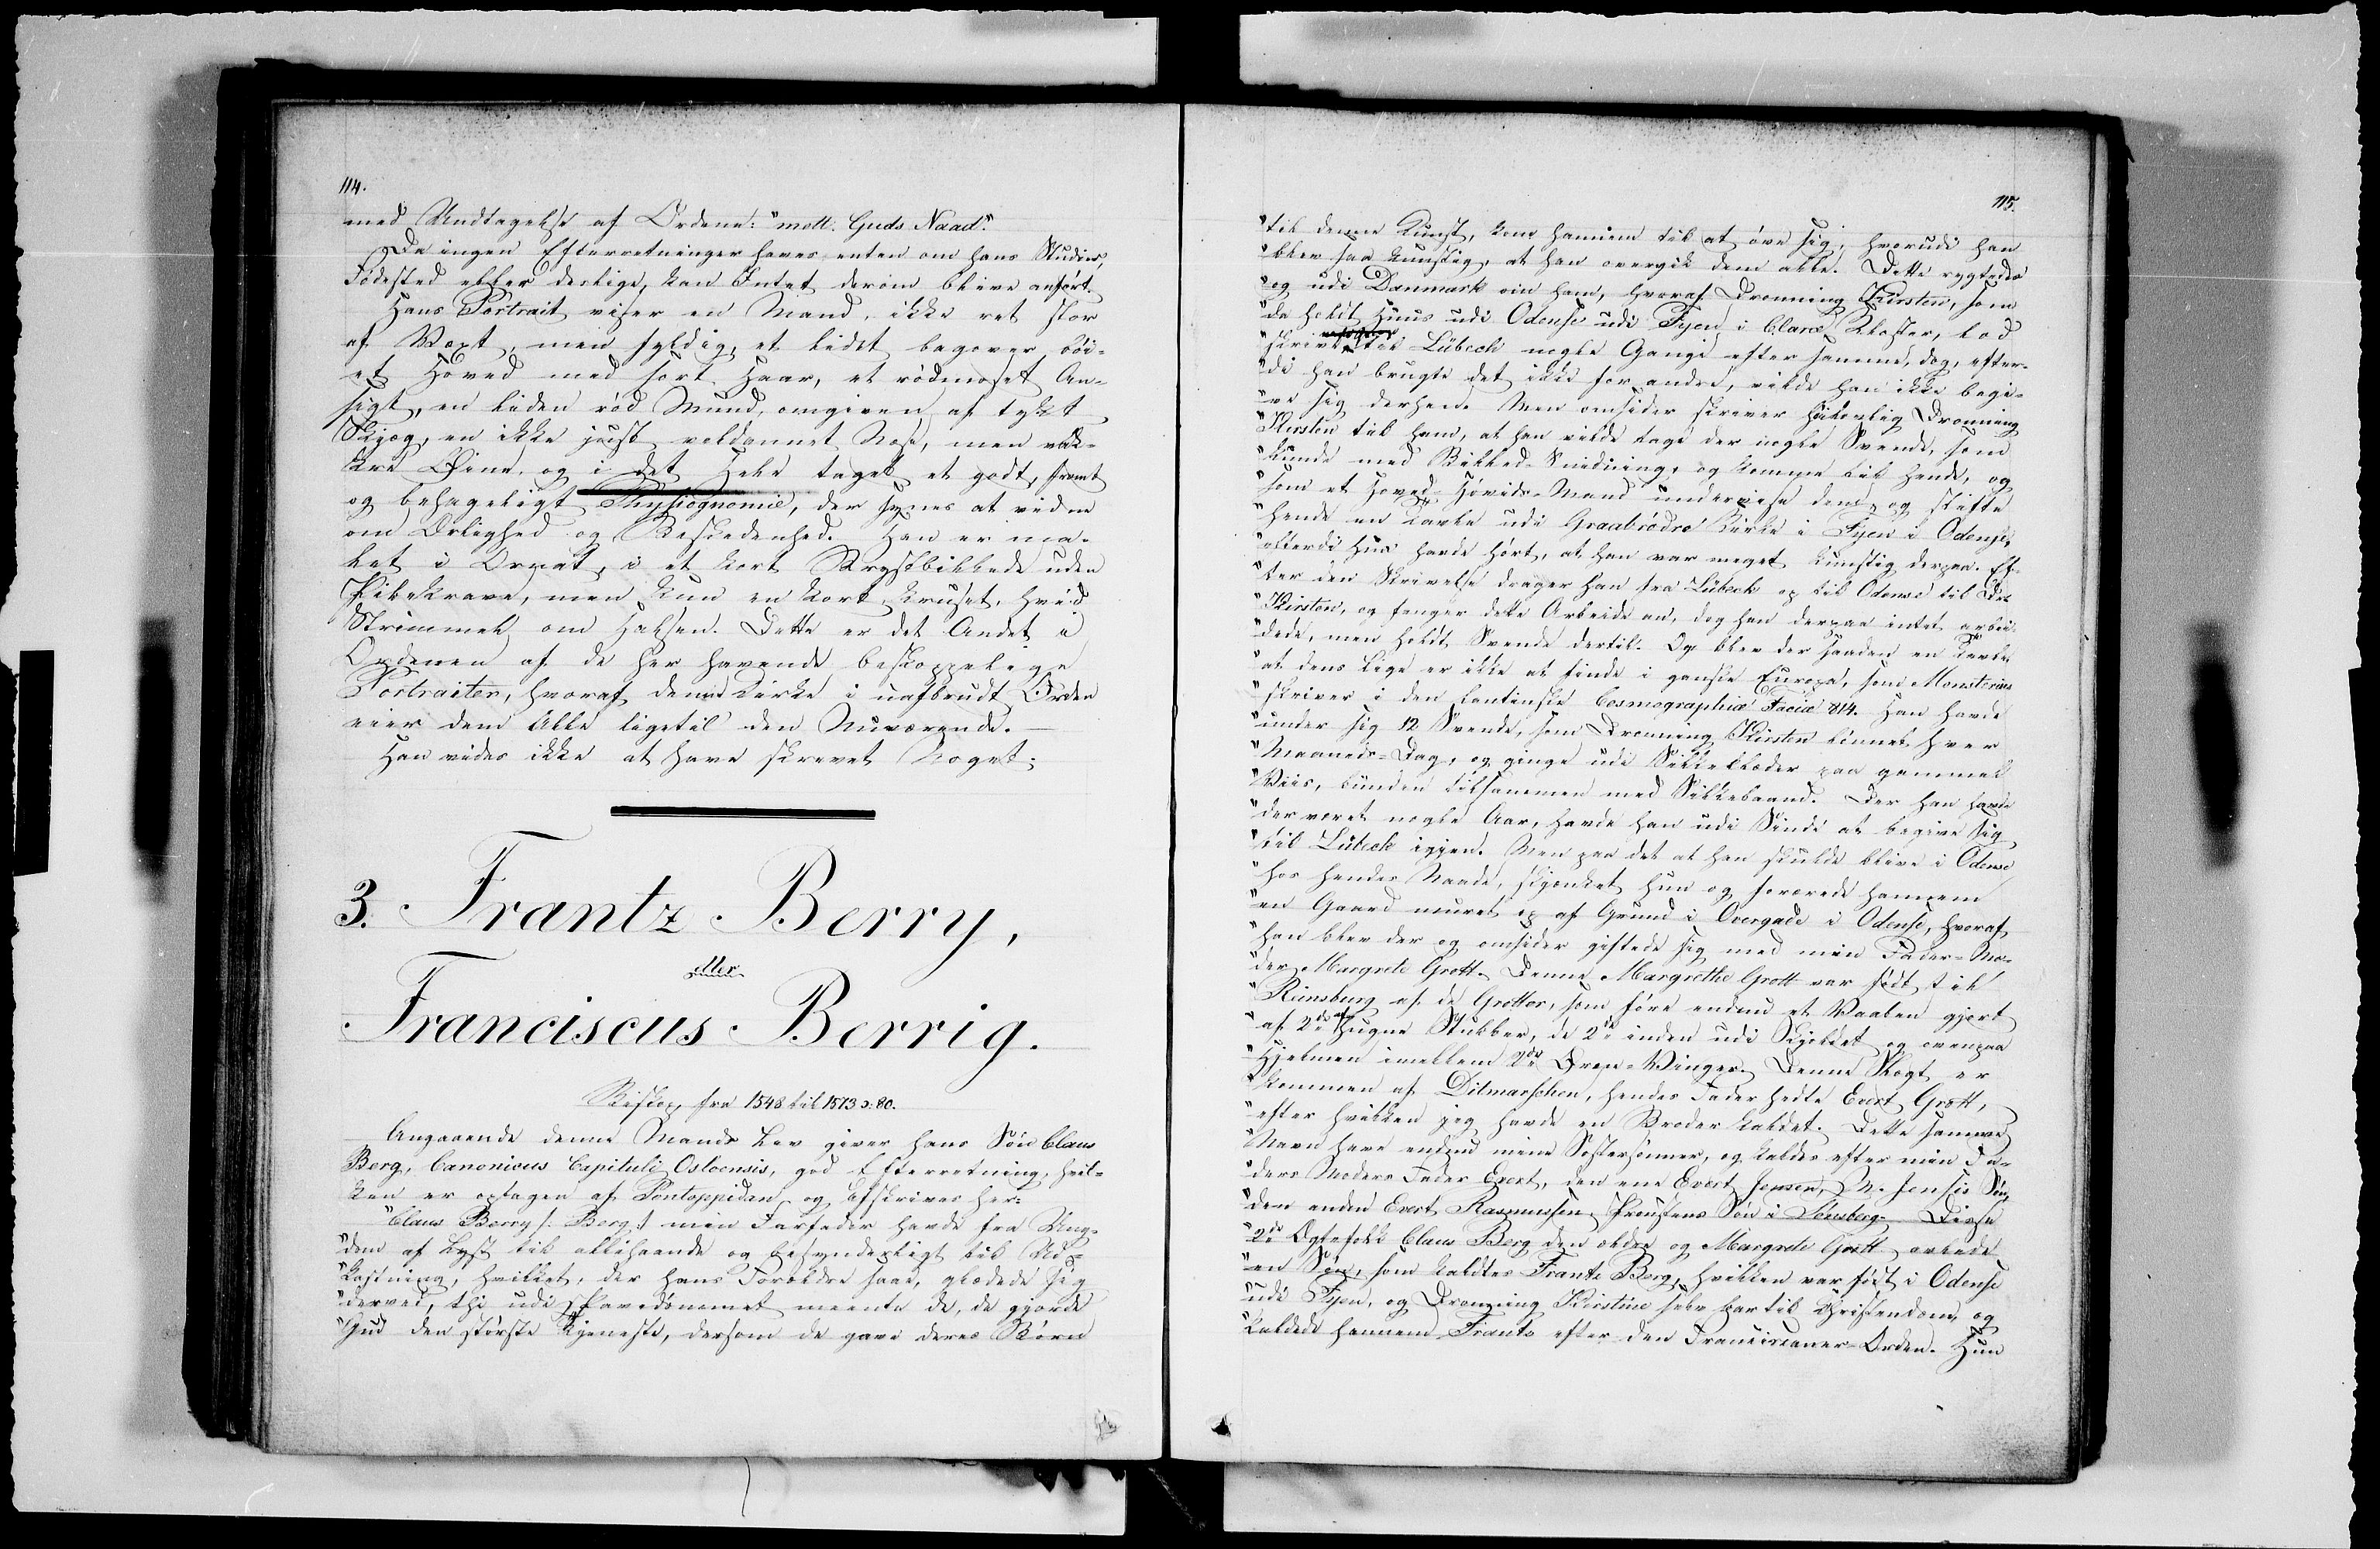 114.
med Undtagelse af Ordene: "mett. Guds Naad".
Da ingen Efterretninger haves enten om hans Studier,
Fødested eller deslige, kan Intet derom blive anført.
Hans Portrait viser en Mand, ikke ret stor
af Vext, men fyldig, et lidet bagover bøi-
et Hoved med sort Haar, et rødmoset An-
sigt, en liden rød Mund, omgiven af tykt
Skjæg, en ikke just veldannet Næse, men vak-
kre Øine, og i det Hele taget et godt, fromt
og behageligt Physiognomie, der synes at vidne
om Ærlighed og Beskedenhed. Han er ma-
let i Ornat, i et kort Brystbillede uden
Pibekrave, men kun en kort, kruset, hvid
Strimmel om Halsen. Dette er det Andet i
Ordenen af de her havende bispelige
Portraiter, hvoraf denne Kirke i uafbrudt Orden
eier dem Alle ligetil den Nuværende.
Han vides ikke at have skrevet Noget.
3. Frantz Berry,
eller
Franciscus Berrig.
Biskop fra 1548 til 1573 ɔ: 80.
Angaaende denne Mands Lev giver hans Søn Claus
Berg, Canonicus Capituli Osloensis, god Efterretning, hvil-
ken er optagen af Pontoppidan og afskrives her:
"Claus Berry /: Berg :/ min Farfader havde fra Ung-
"dom af Lyst til allehaande og besynderligt til Ud-
"kastning, hvilket, der hans Forældre saae, glædede sig
"derved, thi udi Pavedømmet meente de, de gjorde
"Gud den største Tjeneste, dersom de gave deres Børn
115.
"til denne Kunst, kom hannem til at øve sig, hvorudi han
"blev saa kunstig, at han overgik dem alle. Dette rygtedes
"og udi Danmark om ham, hvoraf Dronning Kirsten, som
"da holdt Huus udi Odense udi Fyen i Claræ Kloster, lod
"skrive til Lübech nogle Gange efter hannem, dog, efter-
"di han brugte det ikke for andre, vilde han ikke begi-
"ve sig derhen. Men omsider skriver høilovlig Dronning
"Kirsten til ham, at han vilde tage der nogle Svende, som
"kunde med Billed-Snidning, og komme til hende, og
"som et Hoved-Høvids-Mand underviise dem, og stifte
"hende en Tavle udi Graabrødre Kirke i Fyen i Odense,
"efterdi hun havde hørt, at han var meget kunstig derpaa. Ef-
"ter den Skrivelse drager han fra Lübeck op til Odense til Dr.
"Kirsten, og fanger dette Arbeide an, dog han derpaa intet arbei-
"dede, men holdt Svende dertil. Og blev der saadan en Tavle,
"at dens Lige er ikke at finde i ganske Europa, som Monsterus
"skriver i den Lantinske Cosmographia Facie 814. Han havde
"under sig 12 Svende, som Dronning Kirsten lønnet hver
"Maaneds-Dag, og ginge udi Silkeklæder paa gammel
"Viis, bunden tilsammen med Silkebaand. Der han havde
"der været nogle Aar, havde han udi Sinde at begive sig
"til Lübeck igjen. Men paa det at han skulde blive i Odense
"hos hendes Naade, skjenket hun og forærede hannem
"en Gaard muret op af Grund i Overgade i Odense, hvoraf
"han blev der og omsider giftede sig med min Fader-Mo-
"der Margrete Grott. Denne Margrethe Grott var født til
"Rimsburg af de Grotter, som føre endnu et Vaaben gjort
"af 2de af hugne Stubber, de 2de inden udi Skjoldet og ovenpaa
"Hjelmen imellem 2de Ørne-Vinger. Denne Slægt er
"kommen af Ditmarschen, hendes Fader hedte Evert Grott,
"efter hvilken jeg havde en Broder kaldet. Dette samme
"Navn have endnu mine Søstersønner, og kaldes efter min Fa-
"ders Moders Fader Evert, den ene Evert Jensen, M. Jensis Søn,
"den anden Evert Rasmussen, Proustens Søn i Tønsberg. Disse
"2de Egtefolk Claus Berg den ældre og Margrete Grott avlede
"en Søn, som kaldtes Frants Berg, hvilken var født i Odense
"udi Fyen, og Dronning Kirstine selv bar til Christendom, og
"kaldede hannem Frants efter den Franciscaner-Orden. Hun